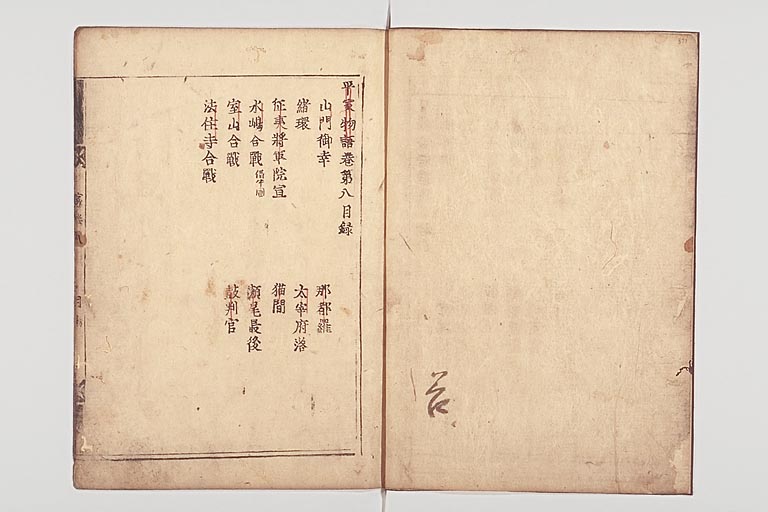 平家物語卷第八目録
山門御幸
那都羅
緒環
太宰府落
征夷將軍院宣
猫間
水嶋合戰
瀬尾最後
室山合戰
皷判官
法住寺合戰